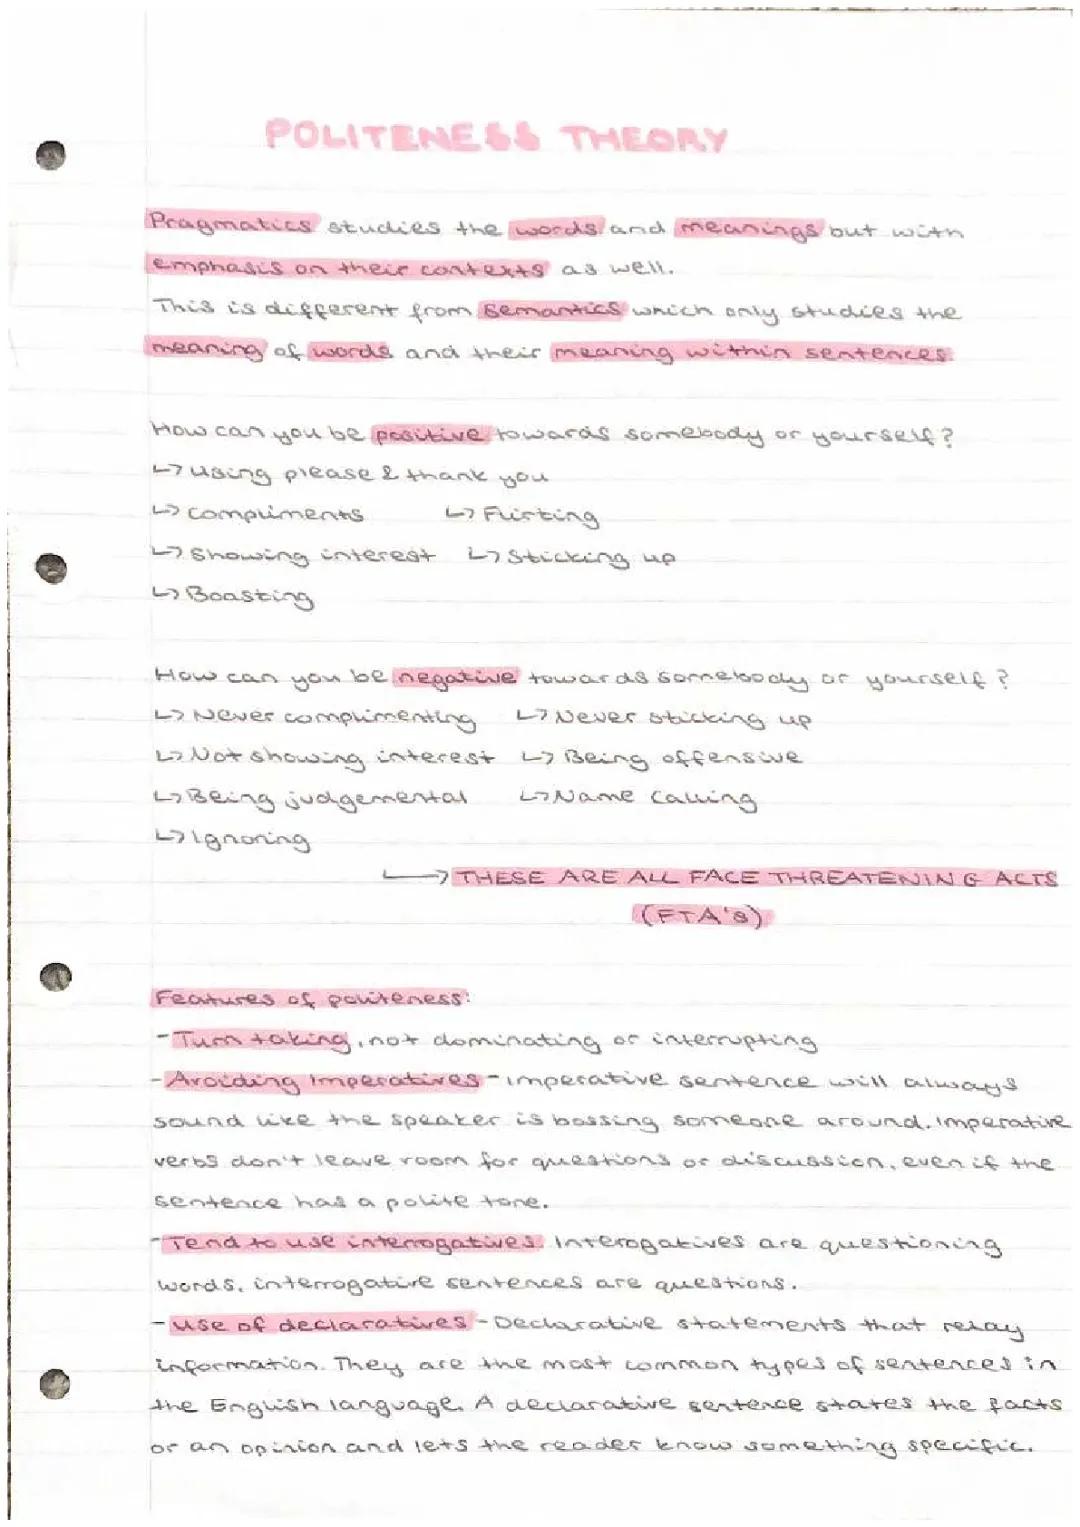 POLITENESS THEORY
Pragmatics studies the words and meanings but with
emphasis on their contexts as well.
This is different from semantics which only studies the
meaning of words and their meaning within sentences.
How can you be positive towards somebody or yourself?
↳ Using please & thank you
↳ Compliments ↳ Flirting
↳ Showing interest ↳ Sticking up
↳ Boasting
How can you be negative towards somebody or yourself?
↳ Never complimenting ↳ Never sticking up
↳ Not showing interest ↳ Being offensive
↳ Being judgemental ↳ Name calling
↳ Ignoring
→ THESE ARE ALL FACE THREATENING ACTS
(FTA's)
Features of politeness:
- Turn taking, not dominating or interrupting
- Avoiding Imperatives - imperative sentence will always
sound like the speaker is bossing someone around. Imperative
verbs don't leave room for questions or discussion, even if the
sentence has a polite tone.
- Tend to use interrogatives. Interogatives are questioning
words, interrogative sentences are questions.
- Use of declaratives - Declarative statements that relay
information. They are the most common types of sentences in
the English language. A declarative sentence states the facts
or an opinion and lets the reader know something specific.